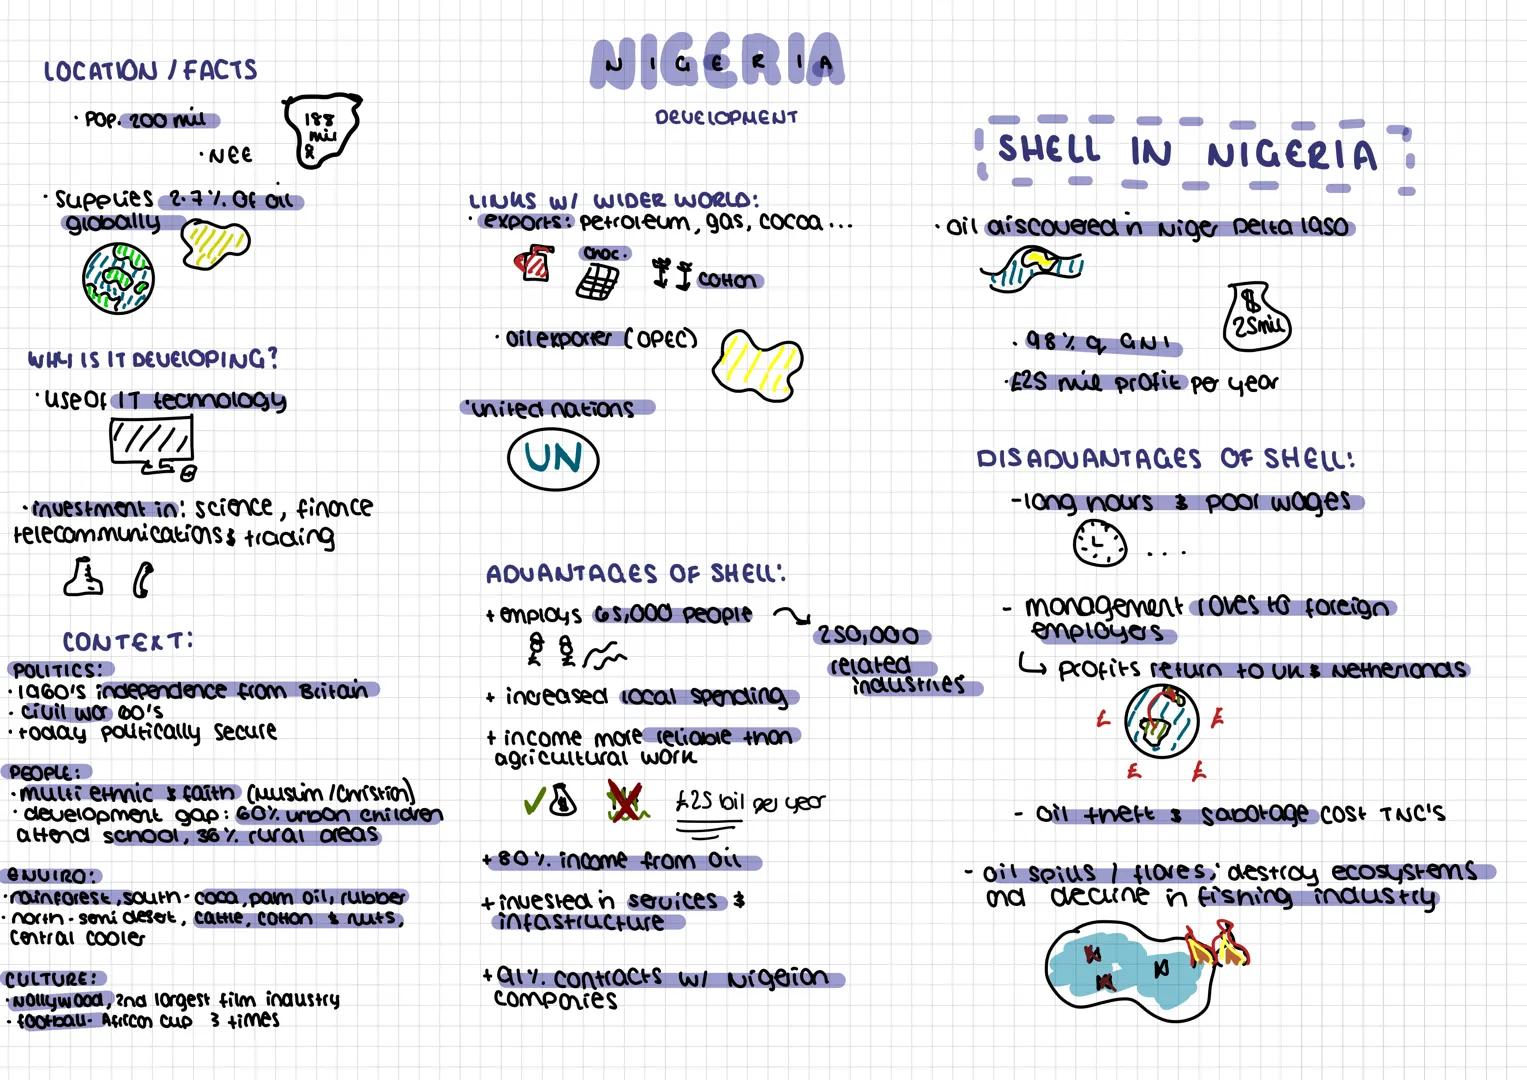 NIGERIA
DEVELOPMENT
LOCATION / FACTS
· POP. 200 mil
188
mil
· NEE
· supplies 2.7% Of oil
globally
WHY IS IT DEVELOPING?
· use Of IT technology
· investment in: science, finance
telecommunications & trading
CONTEXT:
POLITICS:
· 1960's independence from Britain
· civil war 60's
· today politically secure
PEOPLE:
· multi ethnic & faith (Muslim / Christian)
· development gap: 60% urban children
attend school, 36% rural areas
ENVIRO:
· rainforest, south - coca, pam oil, rubber
· north - semi desert, cattle, cotton & nuts,
central cooler
CULTURE:
· Nollywood, 2nd largest film industry
· football - African cup 3 times
LINKS W/ WIDER WORLD:
· exports: petroleum, gas, cocoa...
choc.
cotton
· oil exporter (OPEC)
· united nations
UN
ADVANTAGES OF SHELL:
+ employs 65,000 people
250,000
related
industries
+ increased local spending
+ income more reliable than
agricultural work
£25 bil per year
+ 80% income from oil
+ invested in services &
infastructure
+ 91% contracts w/ Nigerian
companies
SHELL IN NIGERIA
· oil discovered in Niger Delta 1950
$
25mil
· 98% of GNI
· £25 mil profit per year
DISADVANTAGES OF SHELL:
- long hours & poor wages
...
- management roles to foreign
employers
↳ profits return to UK & Netherlands
£ £
£ £
- oil theft & sabotage cost TNC's
- oil spills / flares, destroy ecosystems
and decline in fishing industry